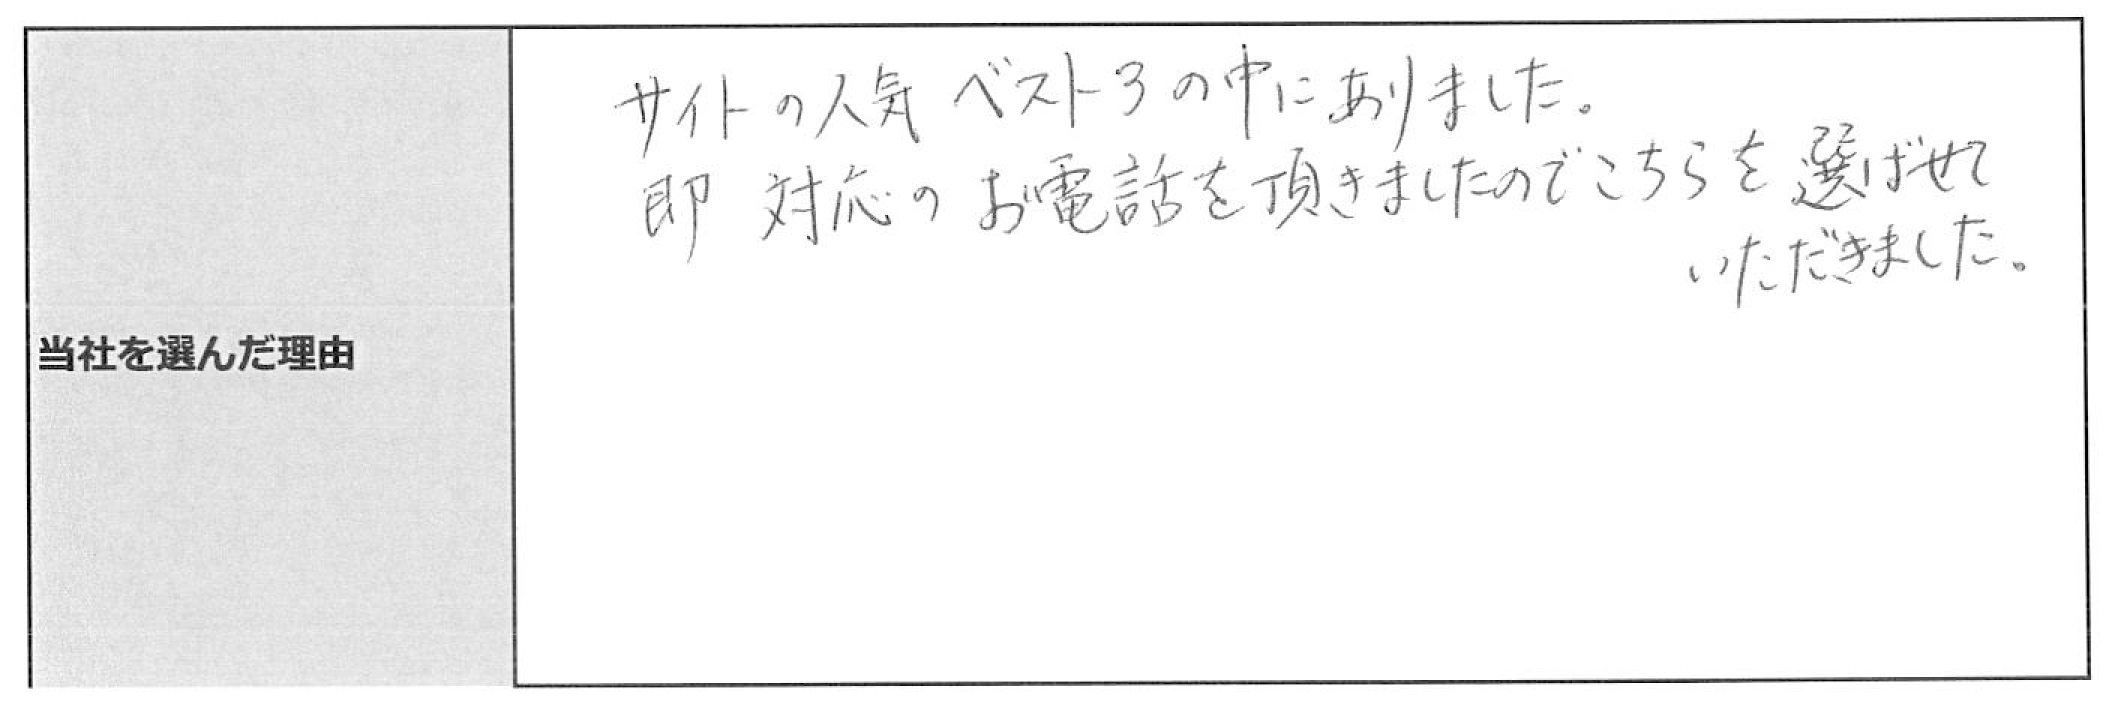 当社を選んだ理由
サイトの人気ベスト3の中にありました。
即対応のお電話を頂きましたのでこちらを選ばせて
いただきました。